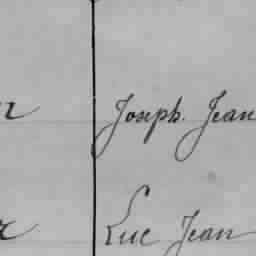 Joseph. Jean
Luc Jean